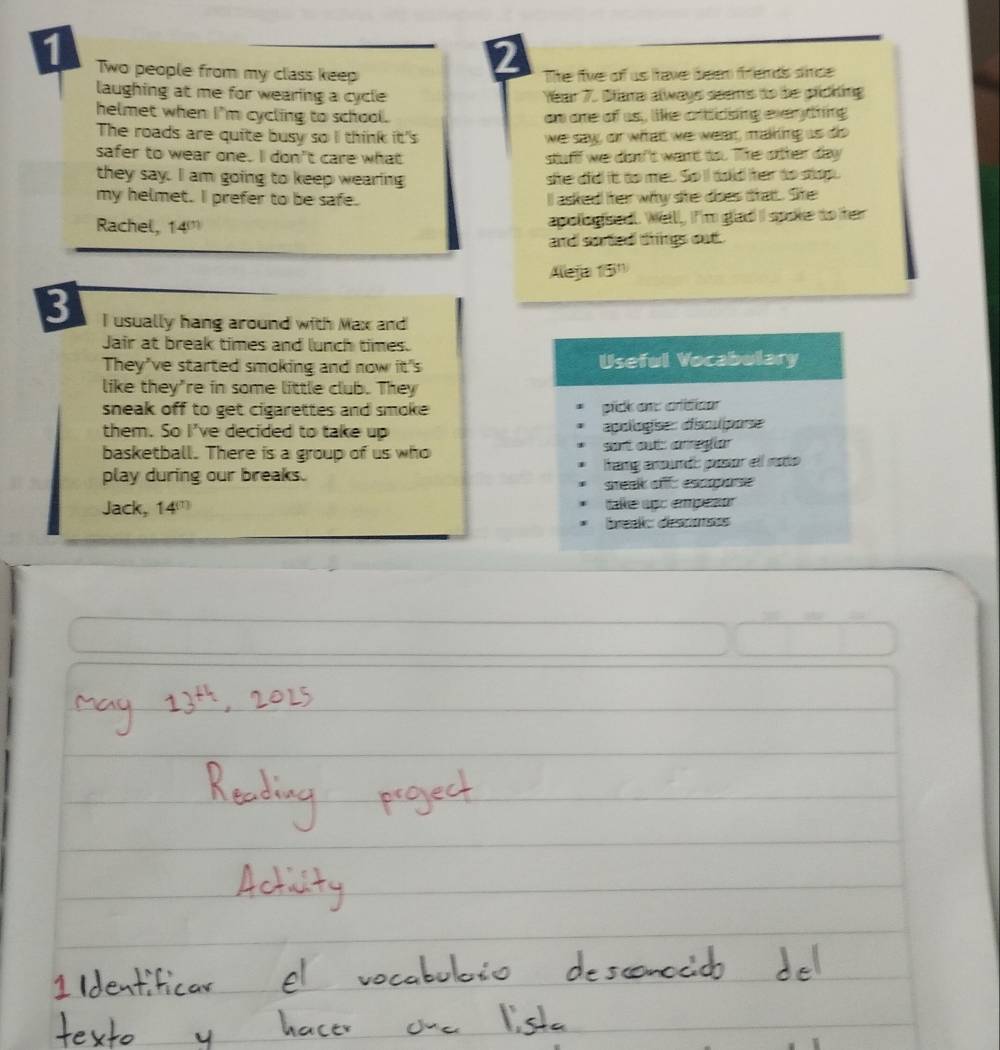 1
Two people from my class keep
laughing at me for wearing a cycle
helmet when I'm cycling to school.
The roads are quite busy so I think it's
safer to wear one. I don't care what
they say. I am going to keep wearing
my helmet. I prefer to be safe.
Rachel, 14⁽¹⁾
2
The five of us have been friends since
Year 7. Diana always seems to be picking
on one of us, like criticising everything
we say, or what we wear, making us do
stuff we don't want to. The other day
she did it to me. So I told her to stop.
I asked her why she does that. She
apologised. Well, I'm glad I spoke to her
and sorted things out.
Aleja 15⁽¹⁾
3
I usually hang around with Max and
Jair at break times and lunch times.
They've started smoking and now it's
like they're in some little club. They
sneak off to get cigarettes and smoke
them. So I've decided to take up
basketball. There is a group of us who
play during our breaks.
Jack, 14⁽¹⁾
Useful Vocabulary
▪ pick on: criticar
▪ apologise: disculparse
▪ sort out: arreglar
▪ hang around: pasar el rato
▪ sneak off: escaparse
▪ take up: empezar
▪ break: descansos
May 13th, 2025
Reading project
Activity
1 Identificar el vocabulaio desconocido del
texto y hacer una lista